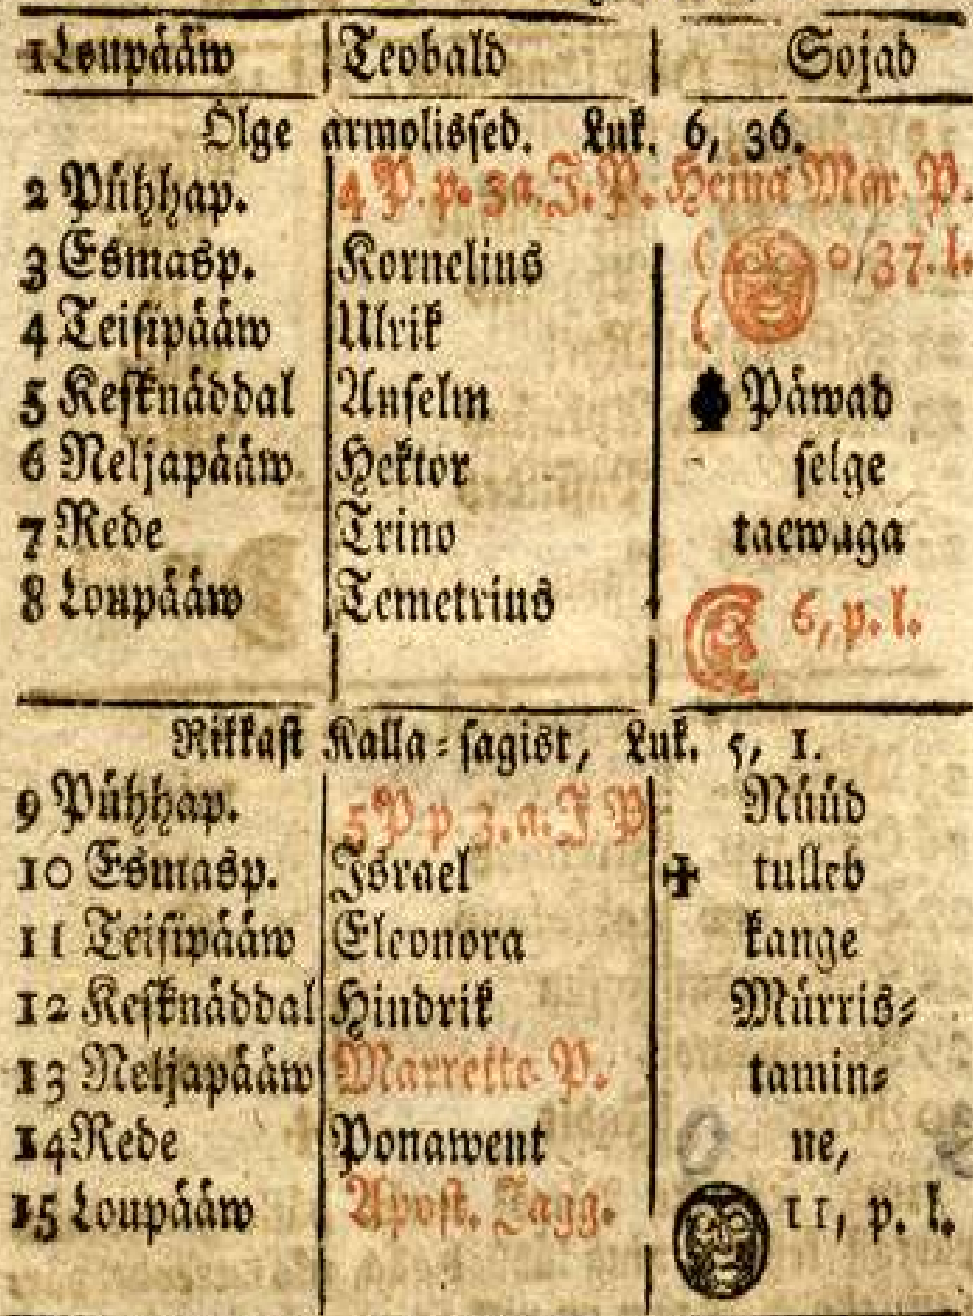 1 Loupääw Teobald Sojad
Olge armolissed. Luk. 6, 36.
2 Pühhap. 4 P. p. 3a. J. P. Heina Mar. P.
3 Esmasp. Kornelius 0/37. l.
4 Teisipääw Ulrik
5 Kesknäddal Anselm Päwad
6 Neljapääw Hektor selge
7 Rede Trino taewaga
8 Loupääw Temetrius 6, p. l.
Rikkast Kalla-sagist, Luk. 5, 1.
9 Pühhap. 5 P p 3. a. J P Nüüd
10 Esmasp. Israel ✠ tulleb
11 Teisipääw Eleonora kange
12 Kesknäddal Hindrik Mürris-
13 Neljapääw Marreite P. tamin-
14 Rede Ponawent ne,
15 Loupääw Apost. Jagg. 11, p. l.